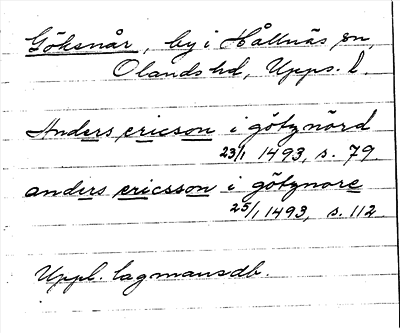 Göksnår, by i Hållnäs sn,
Olands hd, Upps. l.
Anders ericson i götznörd
23/1 1493, s. 79
anders ericsson i götznore
25/1 1493, s. 112
Uppl. lagmansdb.